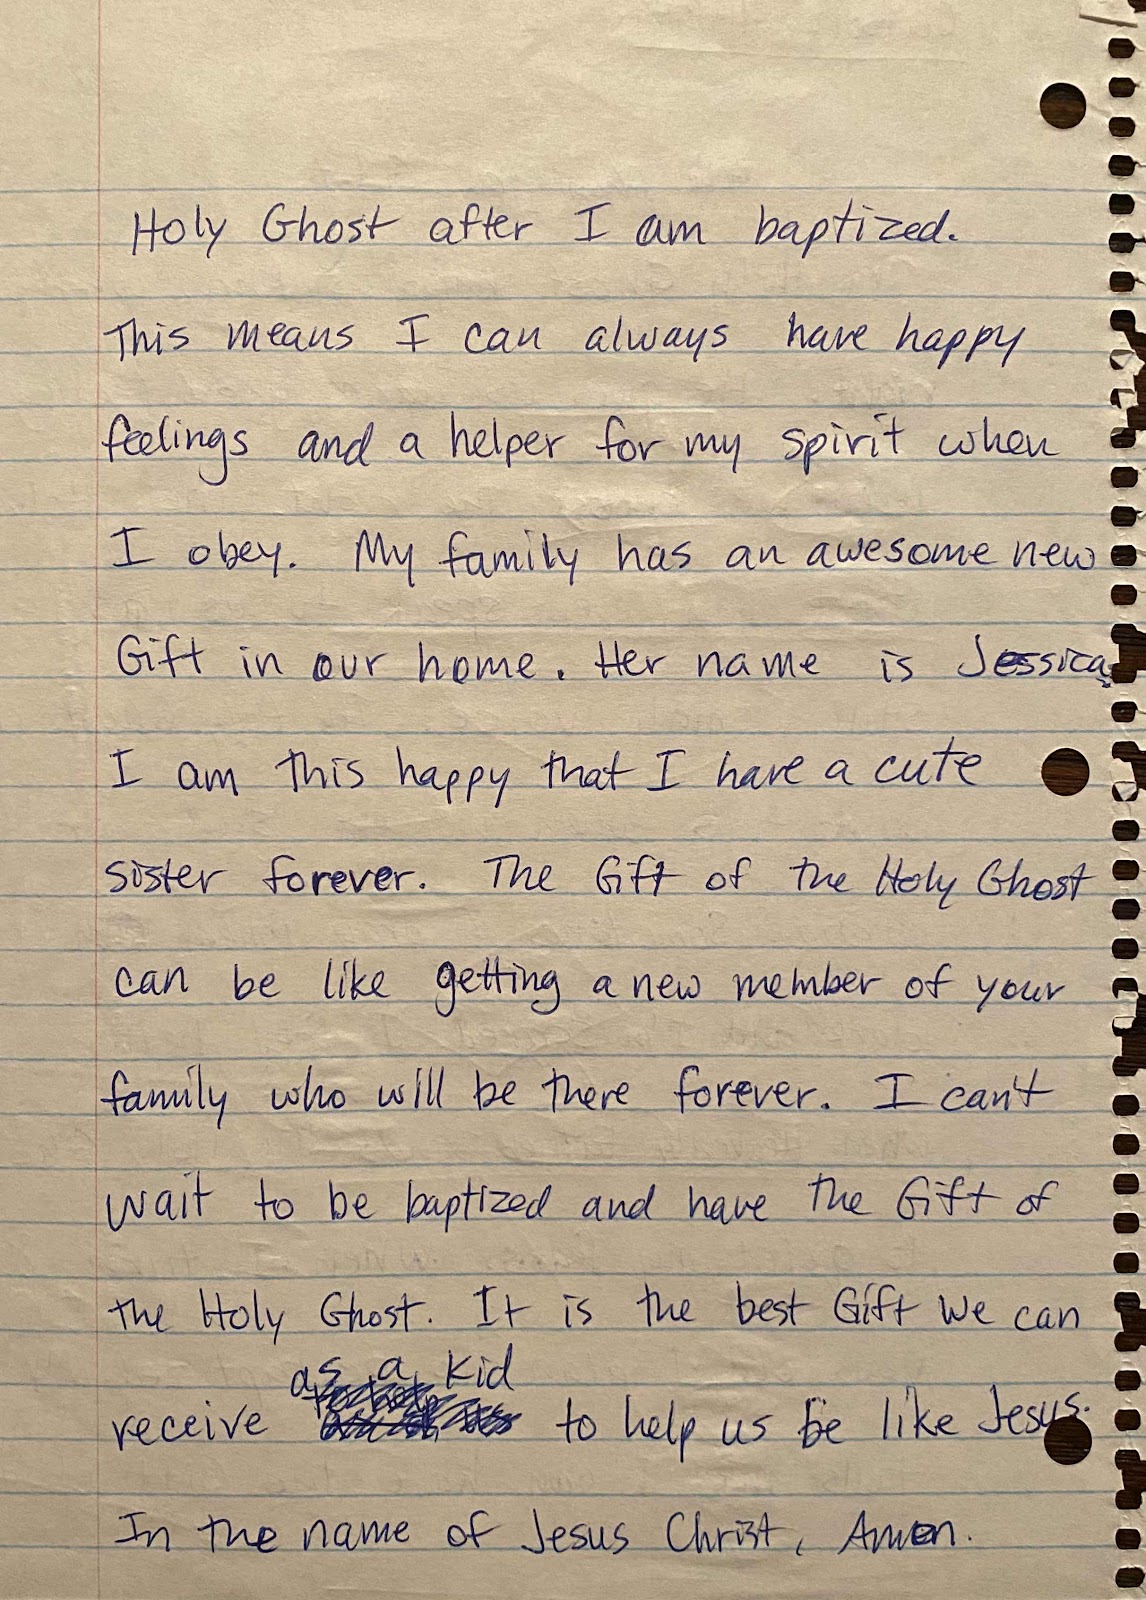 Holy Ghost after I am baptized.
This means I can always have happy
feelings and a helper for my spirit when
I obey. My family has an awesome new
Gift in our home. Her name is Jessica.
I am this happy that I have a cute
sister forever. The Gift of the Holy Ghost
can be like getting a new member of your
family who will be there forever. I can't
wait to be baptized and have the Gift of
the Holy Ghost. It is the best Gift we can
as a kid
receive to help us be like Jesus.
In the name of Jesus Christ, Amen.